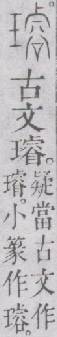 古文璿。
疑當古文作
璿。小篆作璿。